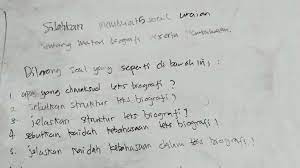 Silahkan membuat 5 soal uraian
tentang materi biografi
Dilarang soal yang seperti di bawah ini :
1. apa yang dimaksud teks biografi ?
2. sebutkan struktur teks biografi ?
3. jelaskan struktur teks biografi ?
4. sebutkan kaidah kebahasaan teks biografi ;
5. jelaskan kaidah kebahasaan dalam teks biografi ;